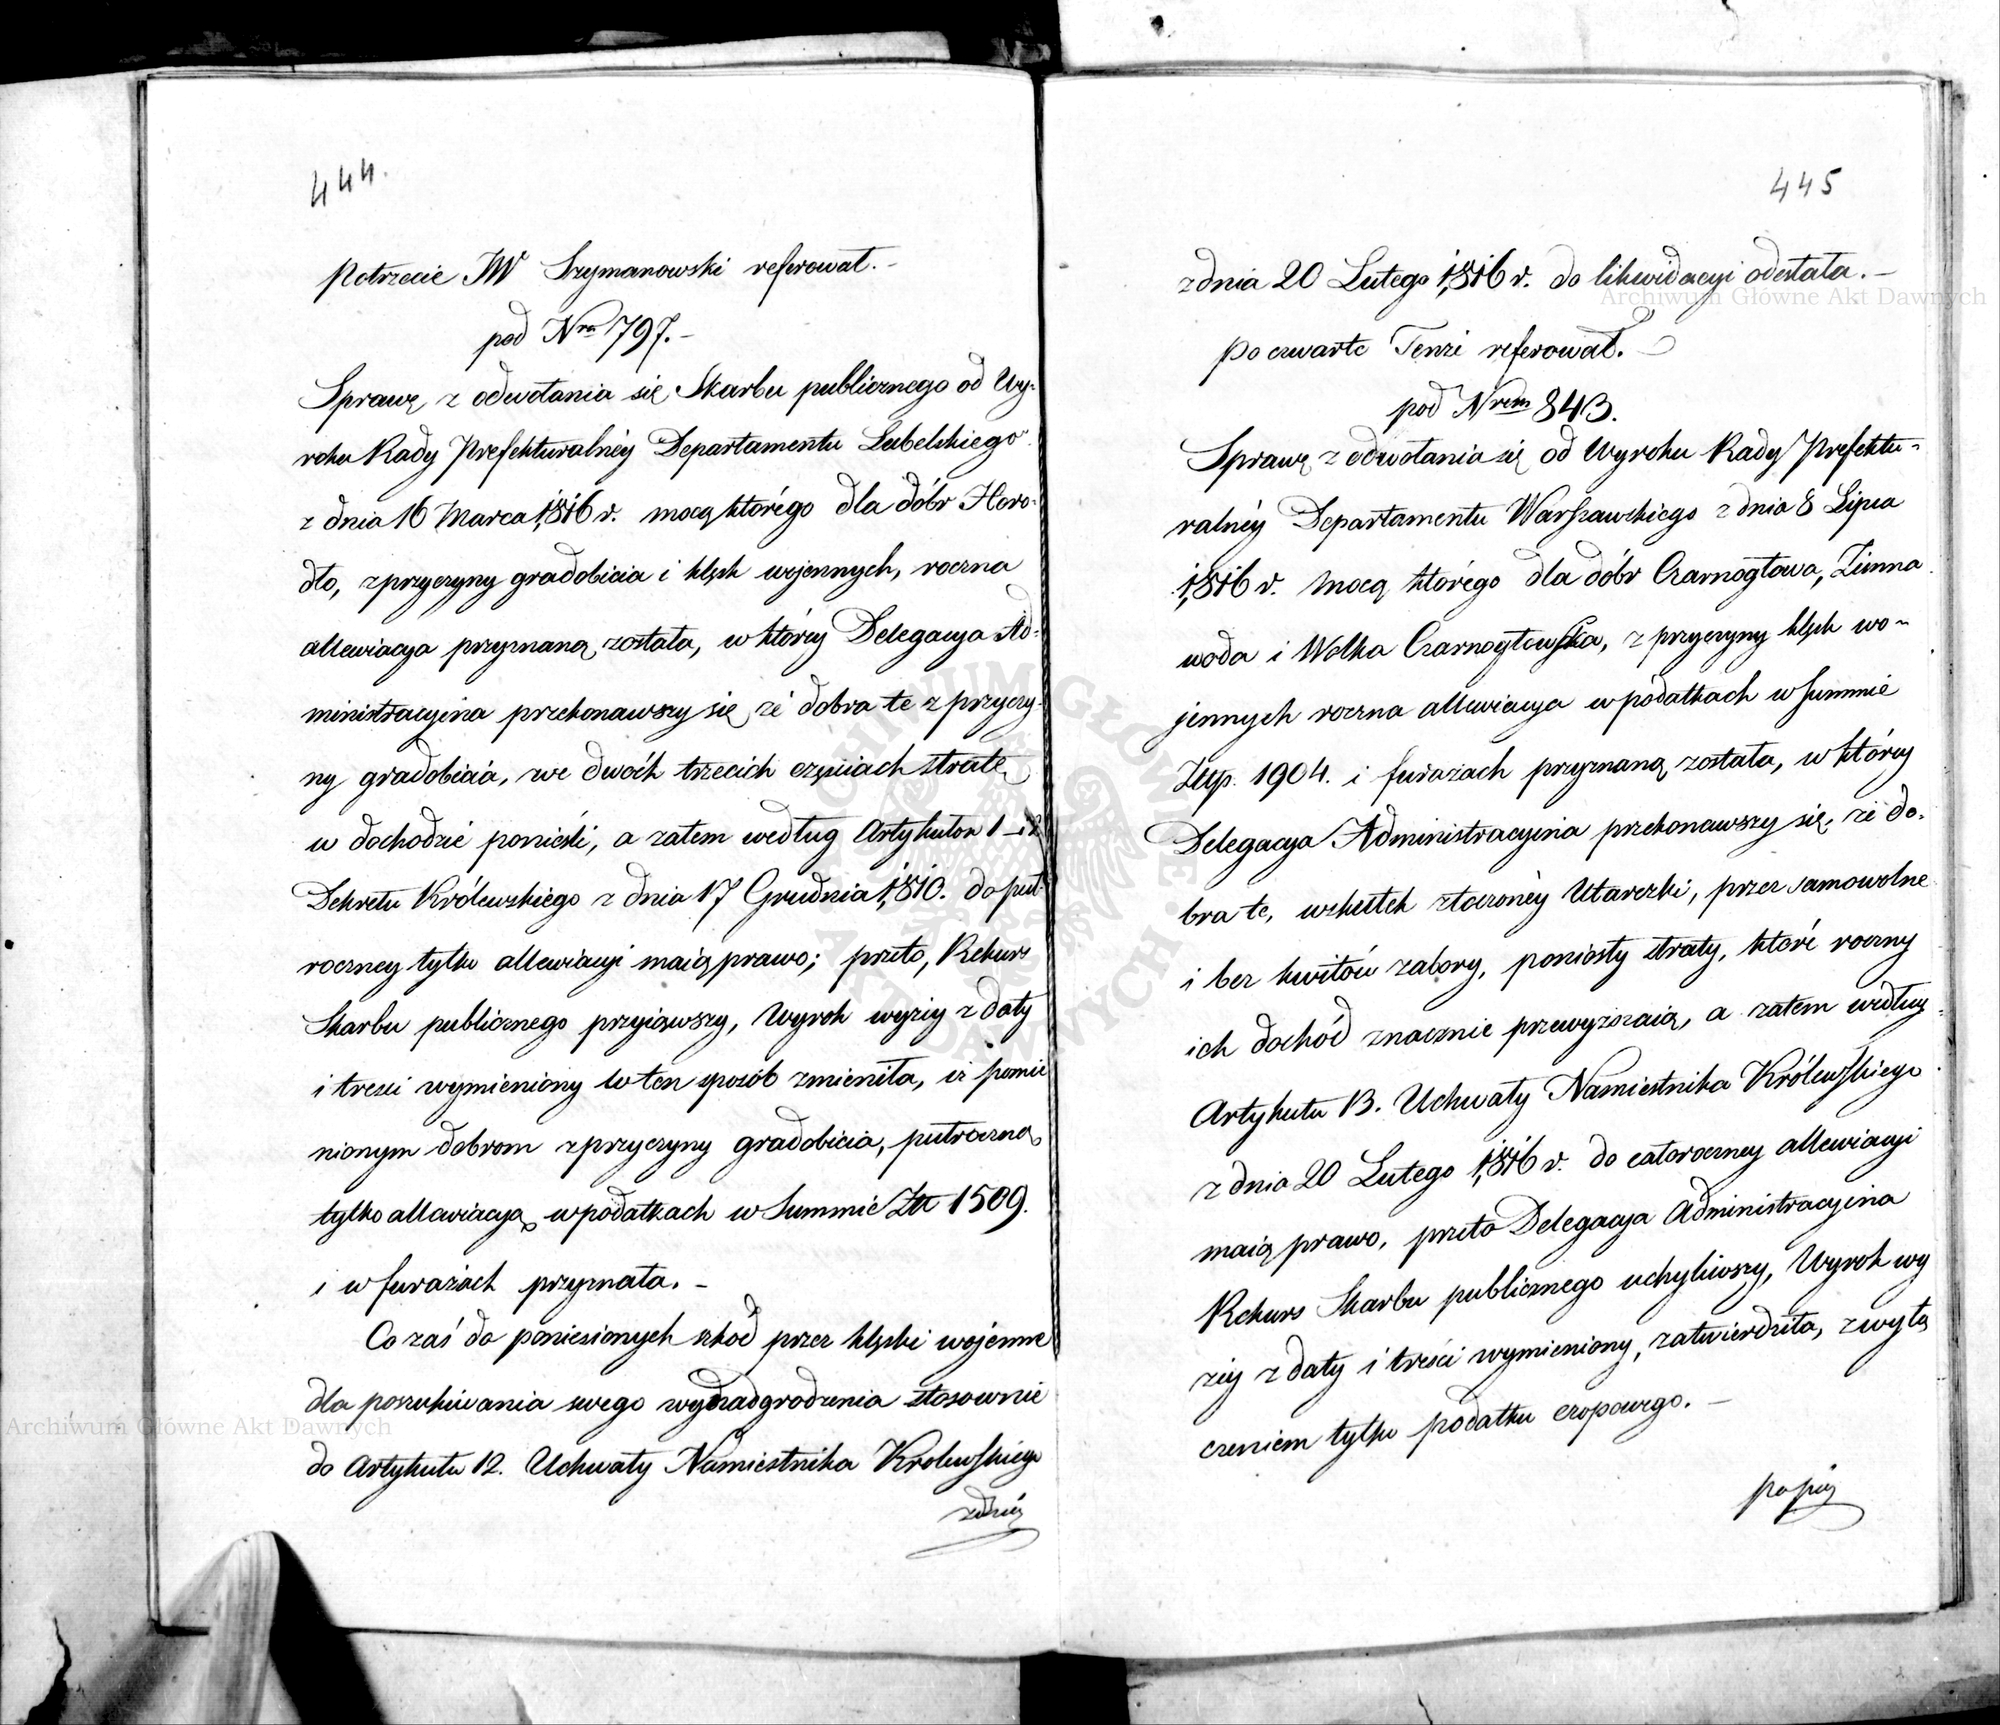 444.
Potrzecie JW Szymanowski referował. –
pod Nrm 797. –
Sprawę z odwołania się Skarbu publicznego od Wy-
roku Rady Prefekturalnéy Departamentu Lubelskiego
z dnia 16 Marca 1816 r. mocą którégo dla dóbr Horo-
dło, z przyczyny gradobicia i klęsk wojennych, roczna
allewiacya przyznaną została, w któréy Delegacya Ad-
ministracyina przekonawszy się, że dobra te z przyczy-
ny gradobicia, we dwóch trzecich częściach stratę
w dochodzie ponieśli, a zatem według Artykułów 1 i 2
Dekretu Królewskiego z dnia 17 Grudnia 1810. do pół-
roczney tylko allewiacyi maią prawo; przeto, Rekurs
Skarbu publicznego przyiąwszy, Wyrok wyżéy z daty
i treści wymieniony w ten sposób zmieniła, iż pomie
nionym dobrom z przyczyny gradobicia, półroczną
tylko allewiacyą w podatkach w Summie Zł 1509.
i w furażach przyznała. –
Co zaś do poniesionych szkód przez klęski wojenne
dla poszukiwania swego wynadgrodzenia stosownie
do Artykułu 12. Uchwały Namiestnika Królewskiego
z dnia
445
z dnia 20 Lutego 1816 r. do likwidacyi odesłała. –
Po czwarte Tenże referował.
pod Nrem 843.
Sprawę z odwołania się od Wyroku Rady Prefektu-
ralnéy Departamentu Warszawskiego z dnia 8 Lipca
1816 r. mocą którégo dla dóbr Czarnogłowa, Zimna
woda i Wolka Czarnogłowska, z przyczyny klęsk wo-
jennych roczna allewiacya w podatkach w Summie
Złłp. 1904. i furażach przyznaną została, w któréy
Delegacya Administracyina przekonawszy się, że do-
bra te, wskutek stoczonéy Utarczki, przez samowolne
i bez kwitów zabory, poniosły straty, które roczny
ich dochód znacznie przewyższaią, a zatem według
Artykułu 13. Uchwały Namiestnika Królewskiego
z dnia 20 Lutego 1816 r. do całoroczney allewiacyi
maią prawo, przeto Delegacya Administracyina
Rekurs Skarbu publicznego uchyliwszy, Wyrok wy
żéy z daty i treści wymieniony, zatwierdziła, z wyłą
czeniem tylko podatku czopowego. –
po pią
Archiwum Główne Akt Dawnych
Archiwum Główne Akt Dawnych
ARCHIWUM GŁÓWNE AKT DAWNYCH